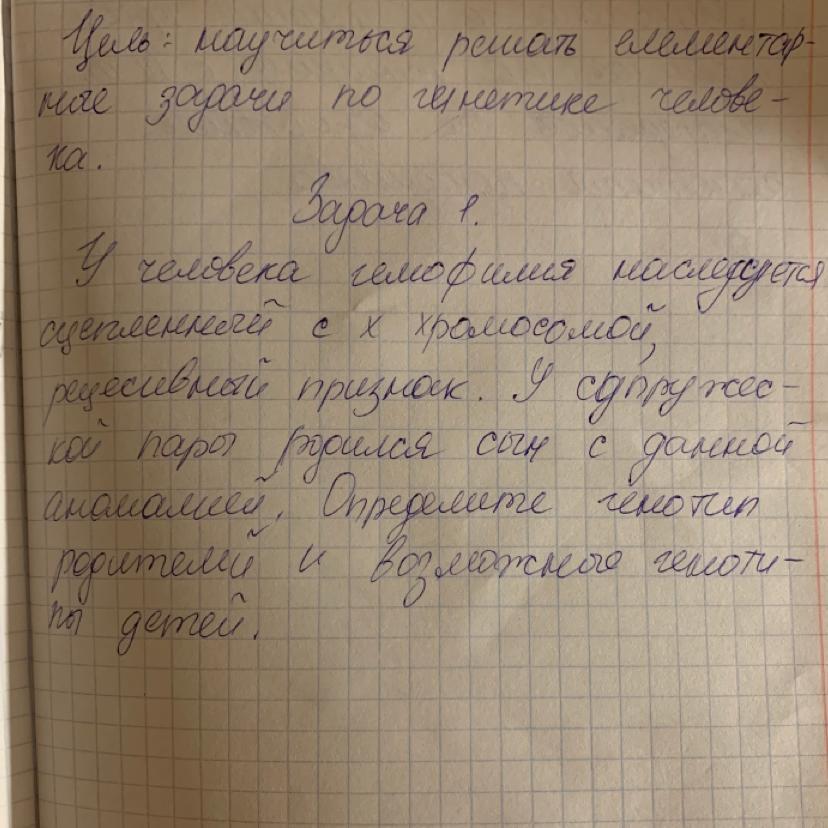 Цель: научиться решать елементар-
ные задачи по генетике челове-
ка.
Задача 1.
У человека гемофилия наследуется
сцепленный с х хромосомой,
рецесивный признак. У супружес-
кой пары родился сын с данной
аномалией. Определите генотип
родителей и возможные геноти-
пы детей.